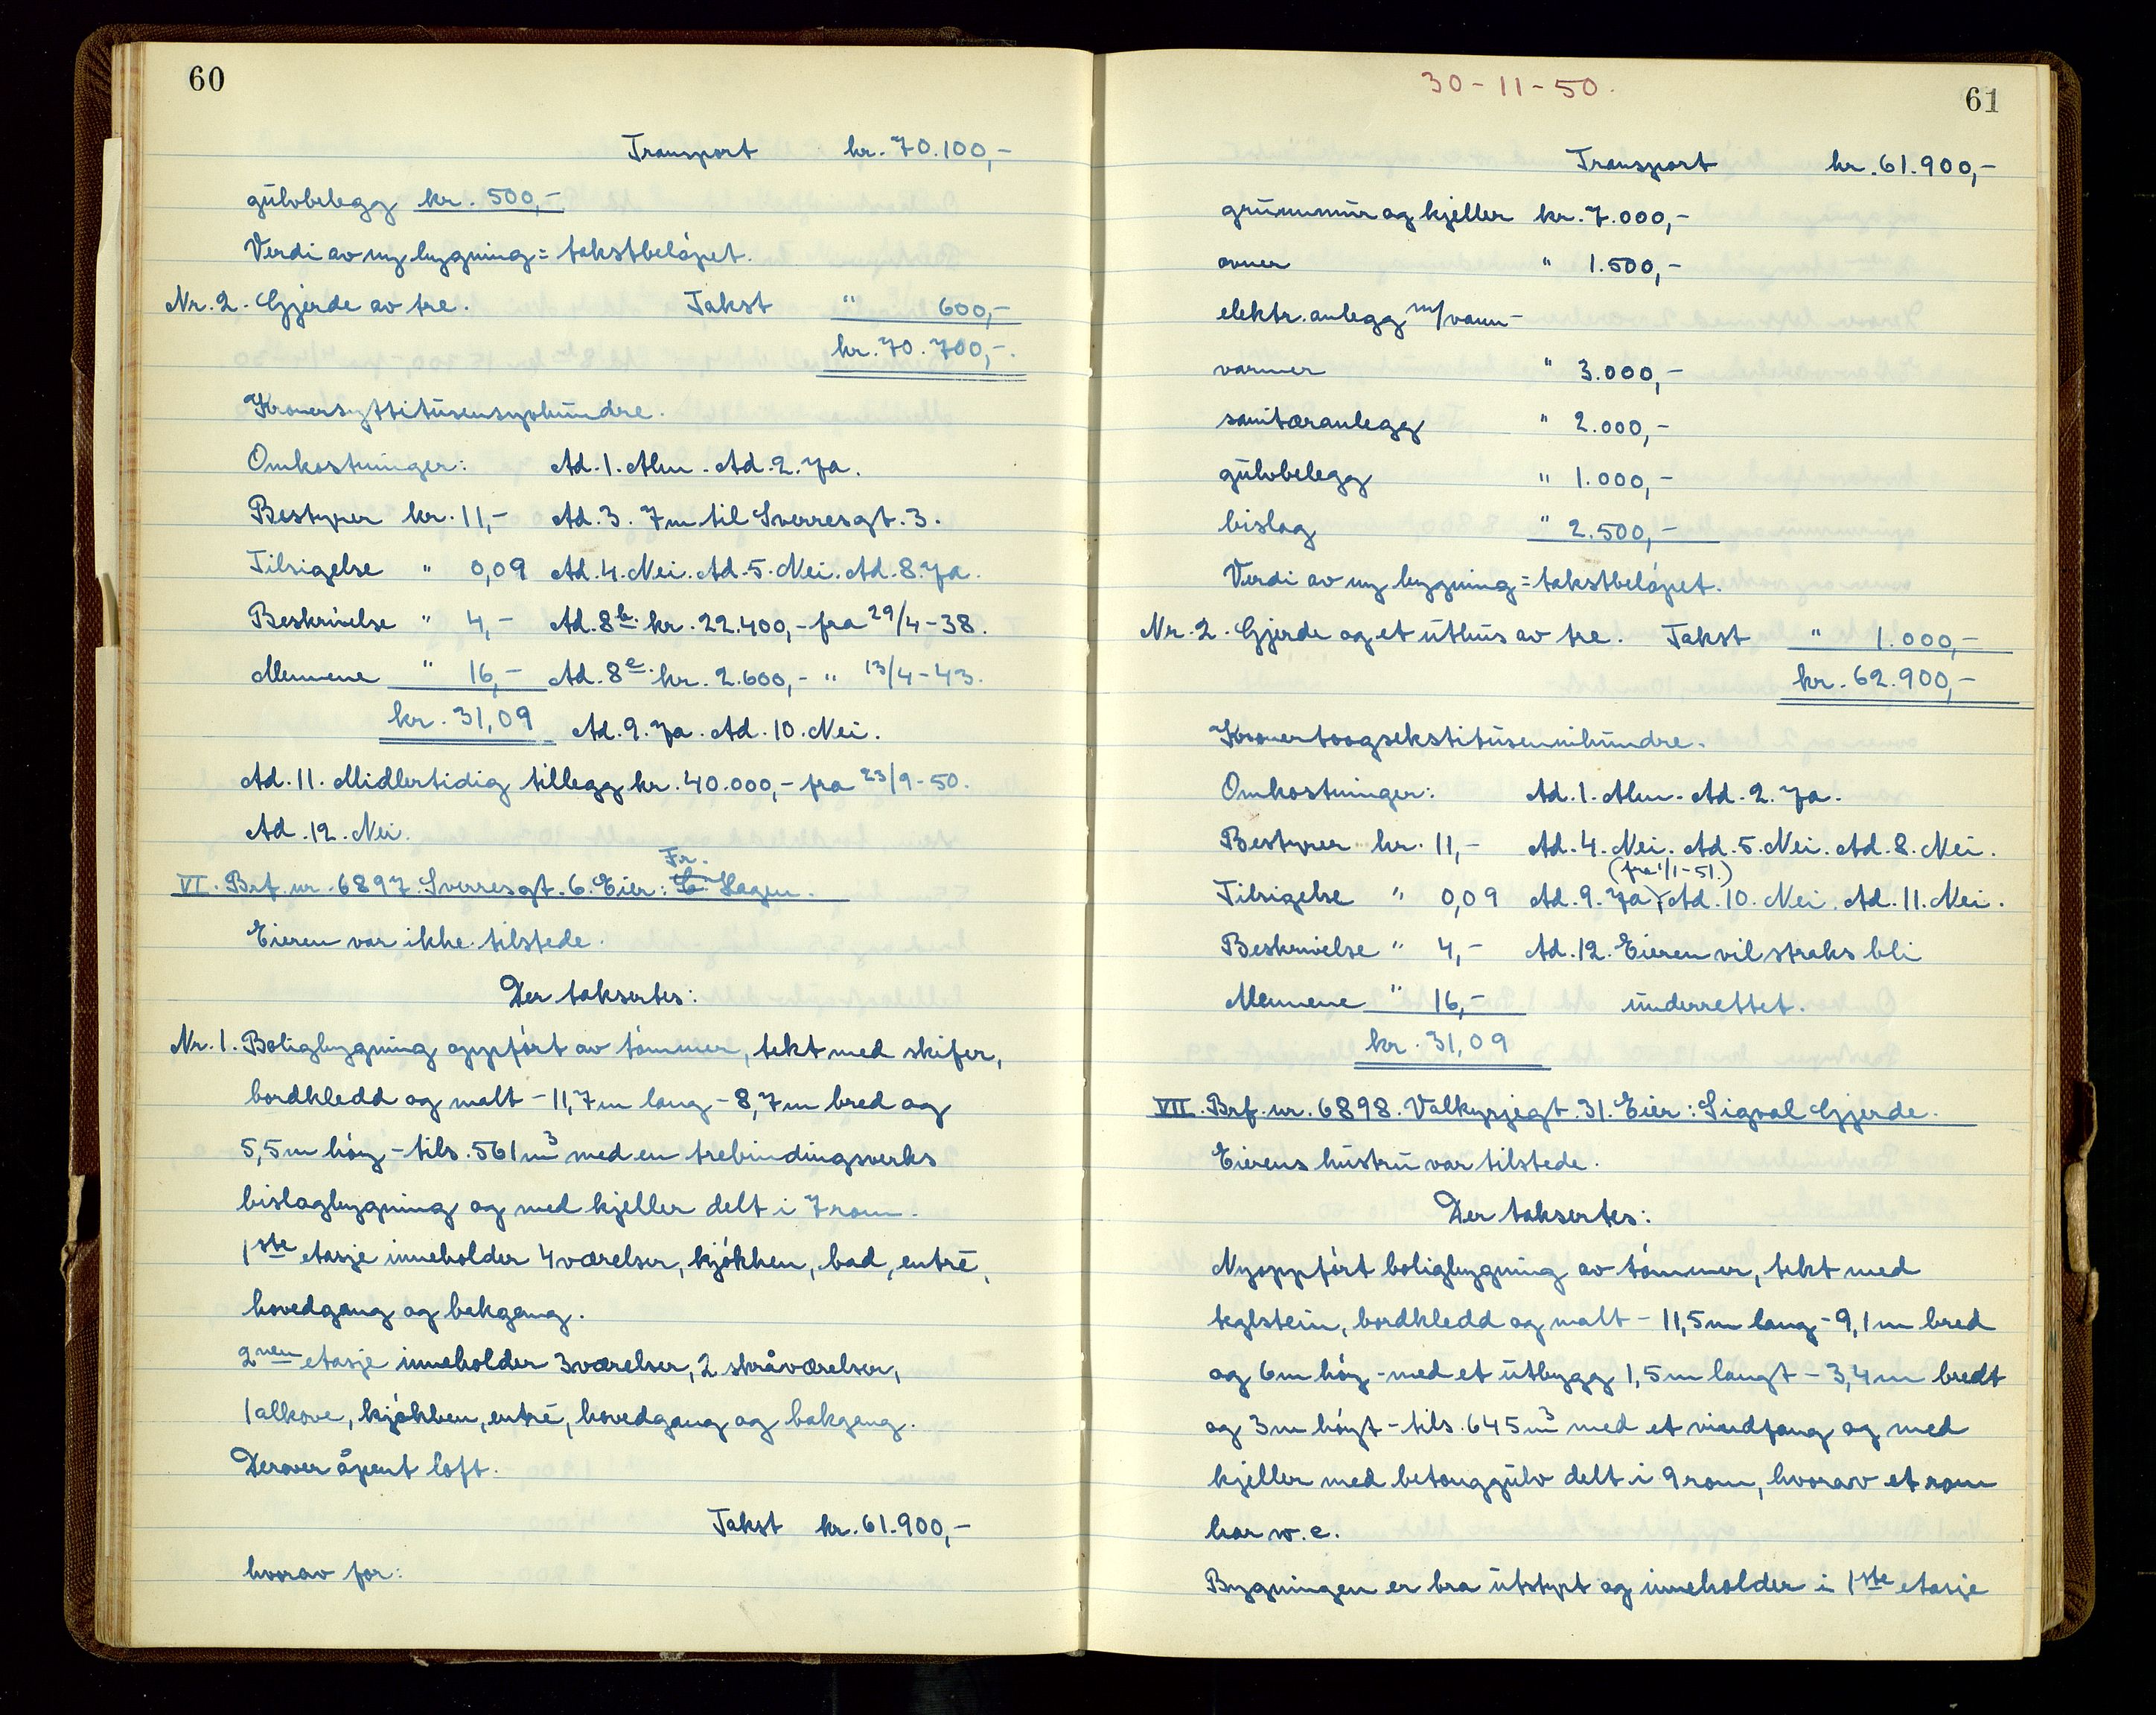 60
Transport kr. 70.100,-
gulvbelegg kr. 500,-
Verdi av ny bygning = takstbeløpet.
Nr. 2. Gjerde av tre. Takst " 600,-
kr. 70.700,-.
Kronersyttitusensyvhundre.
Omkostninger: Ad. 1. Alm. Ad. 2. Ja.
Bestyrer kr. 11,- Ad. 3. 7m til Sverresgt. 3.
Tilsigelse " 0,09 Ad. 4. Nei. Ad. 5. Nei. Ad. 8. Ja.
Beskrivelse " 4,- Ad. 8b. kr. 22.400,- fra 29/4-38.
Mennene " 16,- Ad. 8c. kr. 2.600,- " 13/4-43.
kr. 31,09 Ad. 9. Ja. Ad. 10. Nei.
Ad. 11. Midlertidig tillegg kr. 40.000,- fra 23/9-50.
Ad. 12. Nei.
Fr.
VI. Brf. nr. 6897. Sverresgt. 6. Eier: Hagen.
Eieren var ikke tilstede.
Der taksertes:
Nr. 1. Boligbygning oppført av tømmer, tekt med skifer,
bordkledd og malt - 11,7m lang - 8,7m bred og
5,5m høy - tils. 561m³ med en trebindingsverks
bislagbygning og med kjeller delt i 7 rom.
1ste etasje inneholder 4 værelser, kjøkken, bad, entré,
hovedgang og bakgang.
2nen etasje inneholder 3 værelser, 2 skråværelser,
1 alkove, kjøkken, entré, hovedgang og bakgang.
Derover åpent loft.
Takst kr. 61.900,-
hvorav for:
30-11-50.
61
Transport kr. 61.900,-
grunnmur og kjeller kr. 7.000,-
ovner " 1.500,-
elektr. anlegg m/vann-
varmer " 3.000,-
sanitæranlegg " 2.000,-
gulvbelegg " 1.000,-
bislag " 2.500,-
Verdi av ny bygning = takstbeløpet.
Nr. 2. Gjerde og et uthus av tre. Takst " 1.000,-
kr. 62.900,-
Kronertoogsekstitusennihundre.
Omkostninger: Ad. 1. Alm. Ad. 2. Ja.
Bestyrer kr. 11,- Ad. 4. Nei. Ad. 5. Nei. Ad. 8. Nei.
(fra 1/1-51.)
Tilsigelse " 0,09 Ad. 9. Ja. Ad. 10. Nei. Ad. 11. Nei.
Beskrivelse " 4,- Ad. 12. Eieren vil straks bli
Mennene " 16,- underrettet.
kr. 31,09
VII. Brf. nr. 6898. Valkyrjegt. 31. Eier: Sigval Gjerde.
Eierens hustru var tilstede.
Der taksertes:
Nyoppført boligbygning av tømmer, tekt med
teglstein, bordkledd og malt - 11,5m lang - 9,1m bred
og 6m høy - med et utbygg 1,5m langt - 3,4m bredt
og 3m høyt - tils. 645m³ med et vindfang og med
kjeller med betonggulv delt i 9 rom, hvorav et rom
har w.c.
Bygningen er bra utstyrt og inneholder i 1ste etasje